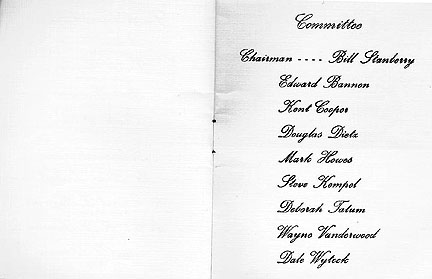 Committee
Chairman ---- Bill Stanberry
Edward Bannen
Kent Cooper
Douglas Dietz
Mark Howes
Steve Kompel
Deborah Tatum
Wayne Vanderwood
Dale Wyteck